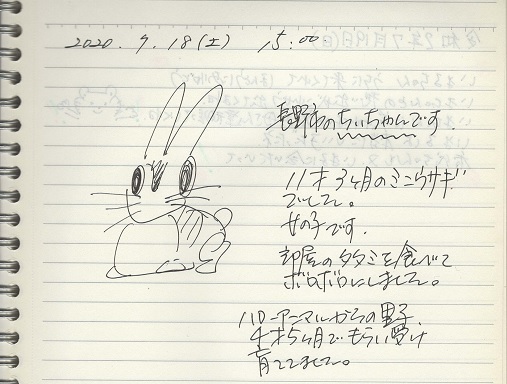 2020. 7. 18(土) 15:00
長野市のちぃちゃんです.
11才3ヶ月のミニウサギ
でした。
女の子です.
部屋のタタミを食べて
ボロボロにしました。
ハローアニマルからの里子.
4才5ヶ月でもらい受け
育ててました。